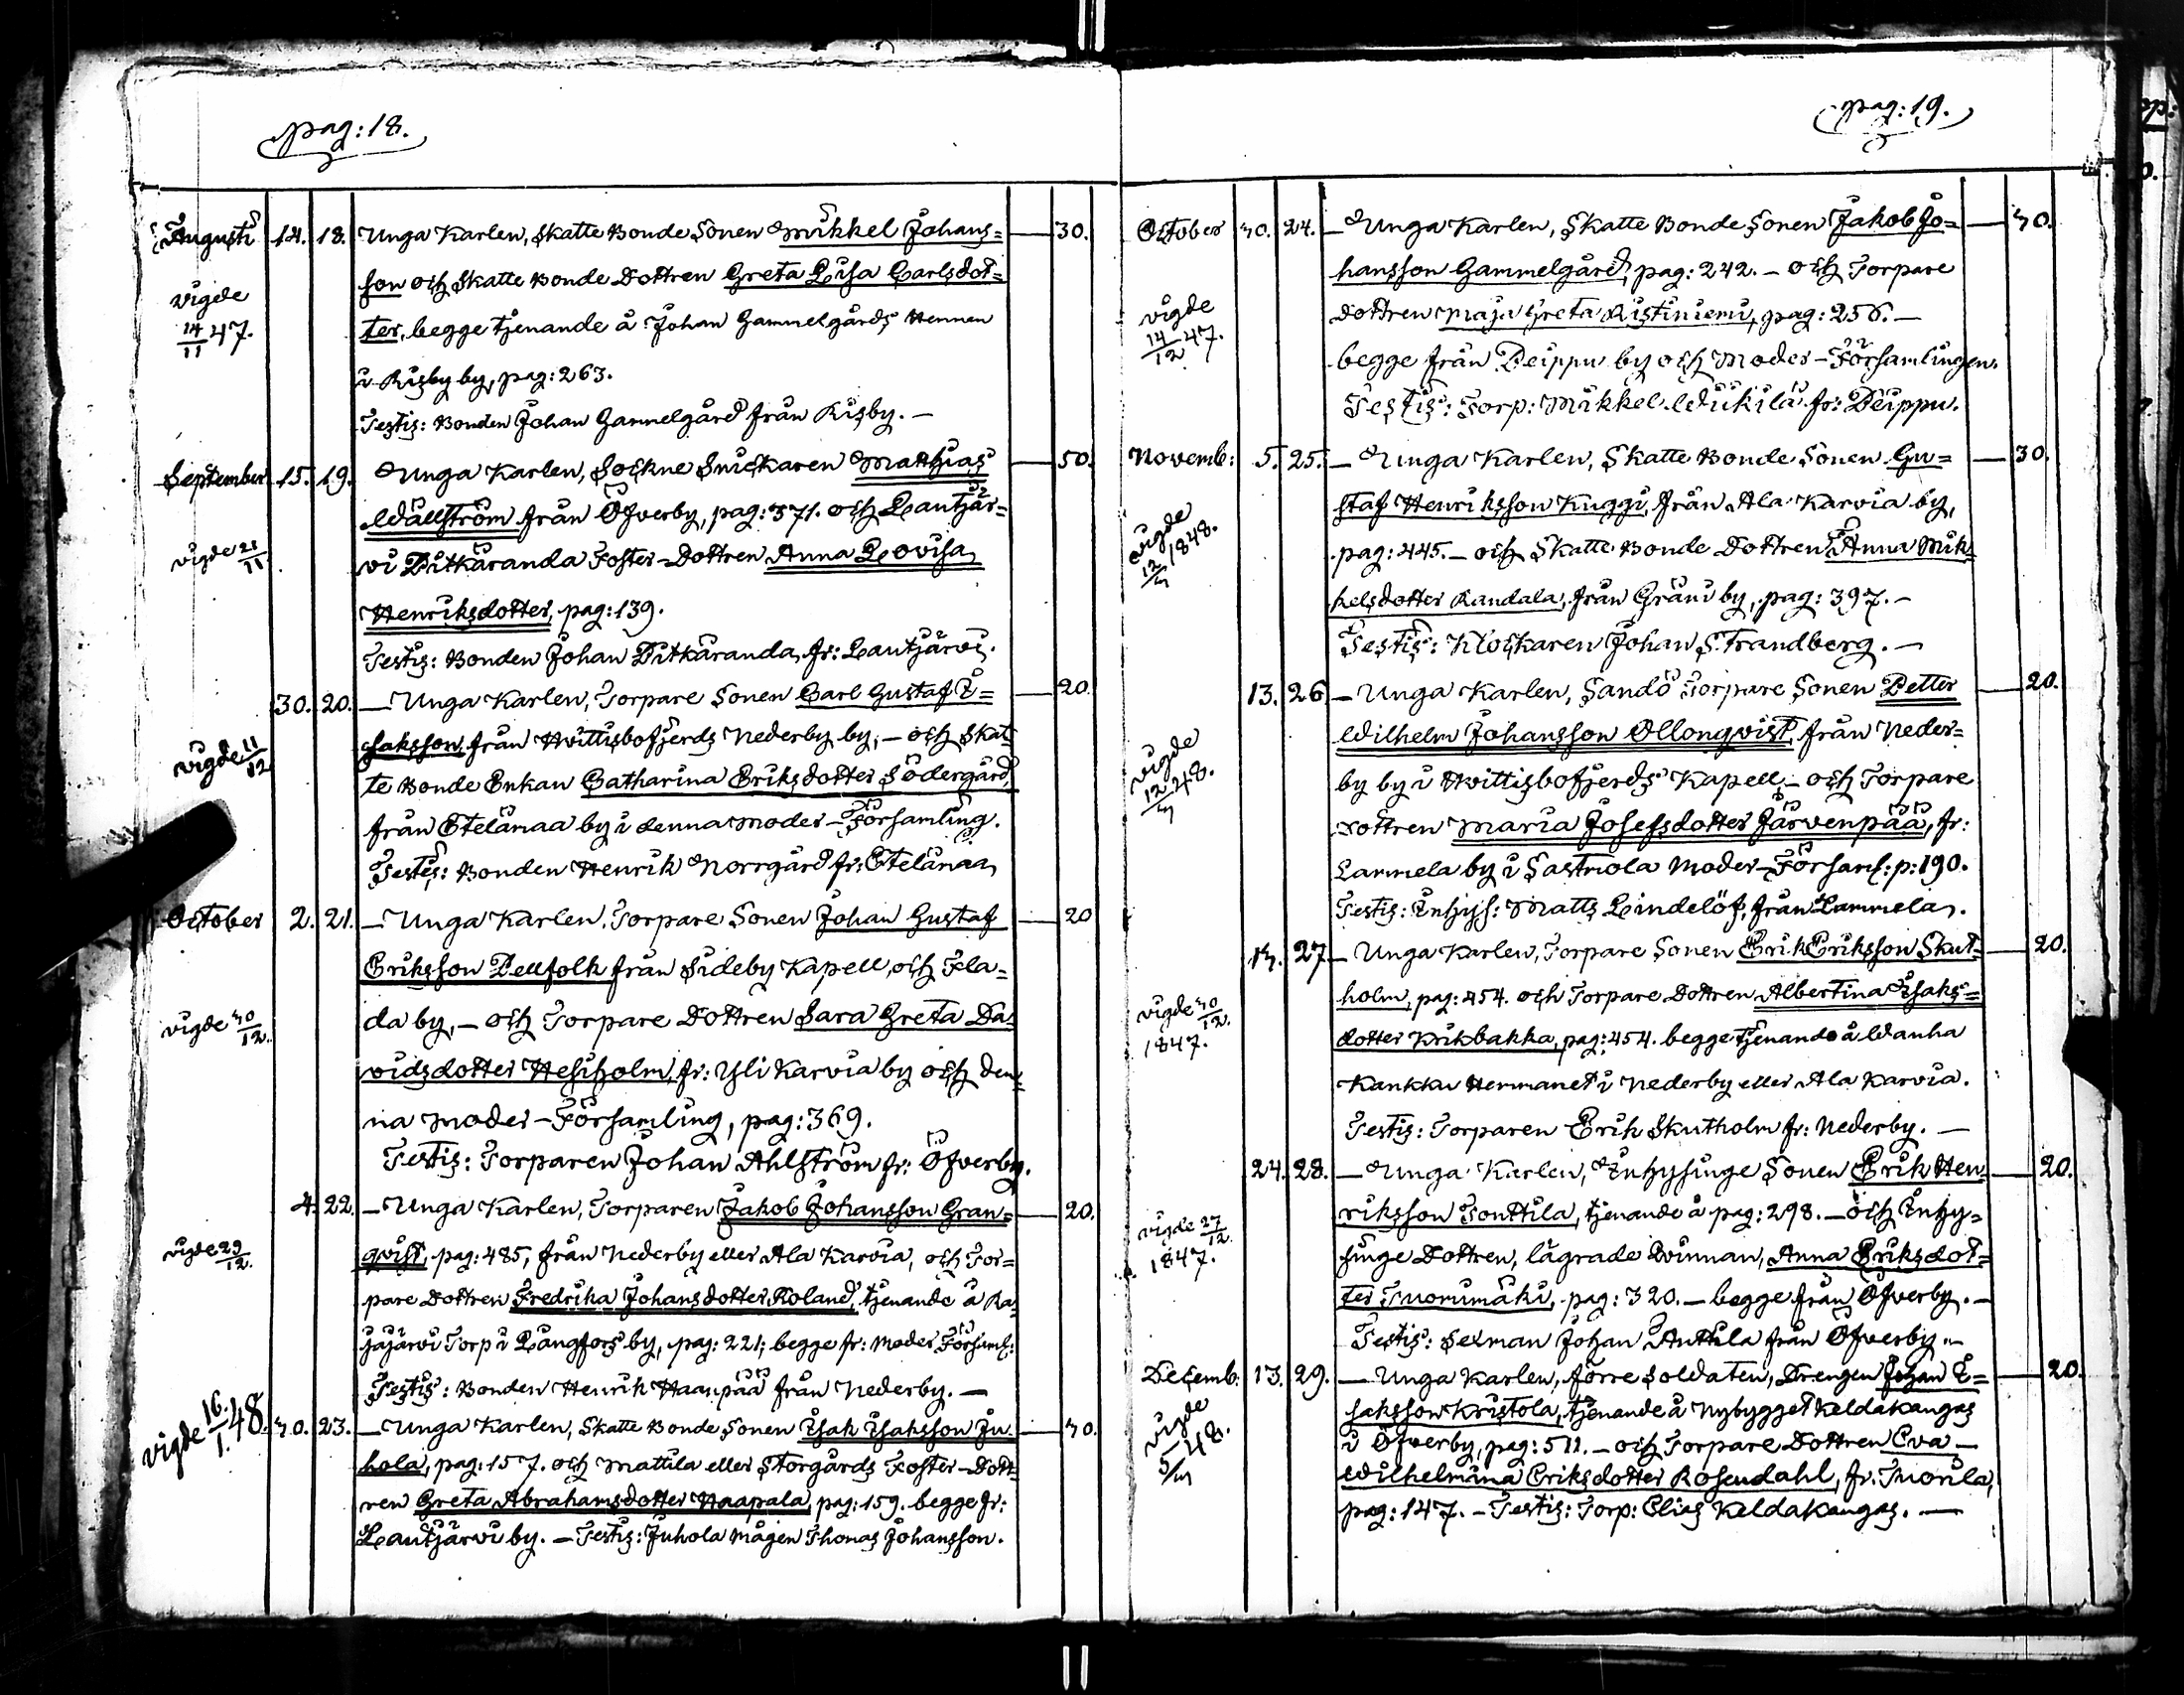 pag: 18.
Augusti 14. 18. Unga Karlen, Skatte Bonde Sonen Mikkel Johans= — 30.
son och Skatte Bonde Dottren Greta Lisa Carlsdot=
vigde 14/11 47.
ter, begge tjenande å Johan Gammelgårds Hemmen
i Kisby by, pag: 263.
Testis: Bonden Johan Gammelgård från Kisby. —
September 15. 19. Unga Karlen, Sockne Snickaren Matthias — 50.
Wällström från Öfverby, pag: 371. och Lautjär=
vigde 21/11.
vi Pitkäranda Foster-Dottren Anna Lovisa
Henriksdotter, pag: 139.
Testis: Bonden Johan Pitkäranda, fr: Lautjärvi.
30. 20. — Unga Karlen, Torpare Sonen Carl Gustaf I= — 20.
saksson från Hvittisbofjerds Nederby by, — och Skat=
vigde 11/12
te Bonde Enkan Catharina Eriksdotter Södergård,
från Etelämaa by i denna Moder-Församling.
Testis: Bonden Henrik Norrgård fr: Etelämaa
October 2. 21. — Unga Karlen, Torpare Sonen Johan Gustaf — 20
Eriksson Pellfolk från Sideby Kapell, och Fla=
da by, — och Torpare Dottren Sara Greta Da=
vigde 30/12.
vidsdotter Hesiholm, fr: Yli Karvia by och den=
na Moder-Församling, pag: 369.
Testis: Torparen Johan Ahlström fr: Öfverby.
4. 22. — Unga Karlen, Torparen Jakob Johansson Gran= — 20.
qvist, pag: 485, från Nederby eller Ala Karvia, och Tor=
vigde 29/12.
pare Dottren Fredrika Johansdotter Roland, tjenande å Ka=
jajärvi Torp i Långfors by, pag: 221; begge fr: Moder Församl:
Testis: Bonden Henrik Haanpää från Nederby. —
vigde 16/1. 48. 30. 23. — Unga Karlen, Skatte Bonde Sonen Isak Isaksson Ju= — 30.
hola, pag: 157. och Mattila eller Storgårds Foster-Dott=
ren Greta Abrahamsdotter Naapala, pag: 159. begge fr:
Lautjärvi by. — Testis: Juhola Mågen Thomas Johansson.
pag: 19.
October 30. 24. — Unga Karlen, Skatte Bonde Sonen Jakob Jo= — 30.
hansson Gammelgård, pag: 242. — och Torpare
vigde 14/12 47.
Dottren Maja Greta Ristiniemi, pag: 256. —
begge från Leippu by och Moder-Församlingen.
Testis: Torp: Mikkel Wiikilä fr: Leippu.
Novemb: 5. 25. — Unga Karlen, Skatte Bonde Sonen Gu= — 30.
staf Henriksson Kuggi, från Ala Karvia by,
vigde 12/3 1848.
pag: 445. — och Skatte Bonde Dottren Anna Mik=
kelsdotter Randala, från Gräni by, pag: 397. —
Testis: Klockaren Johan Strandberg. —
13. 26. — Unga Karlen, Sandö Torpare Sonen Petter — 20.
Wilhelm Johansson Ollonqvist, från Neder=
vigde 12/3 48.
by by i Hvittisbofjerds Kapell, — och Torpare
Dottren Maria Josefsdotter Järvenpää, fr:
Lammela by i Sastmola Moder-Församl: p: 190.
Testis: Inhys: Matts Lindelöf, från Lammela.
13. 27. — Unga Karlen, Torpare Sonen Erik Eriksson Skut= — 20.
holm, pag: 454. och Torpare Dottren Albertina Isaks=
vigde 30/12. 1847.
dotter Krikbakka, pag: 454. begge tjenande å Wanha
Kankku Hemmanet i Nederby eller Ala Karvia.
Testis: Torparen Erik Skutholm fr: Nederby. —
24. 28. — Unga Karlen, Inhysinge Sonen Erik Hen= — 20.
riksson Tonttila, tjenande å pag: 298. — och Inhy=
vigde 27/12. 1847.
singe Dottren, lägrade Qvinnan, Anna Eriksdot=
ter Tuorimäki, pag: 320. — begge från Öfverby. —
Testis: Sexman Johan Anttila från Öfverby. —
Decemb: 13. 29. — Unga Karlen, förre Soldaten, Drengen Johan I= — 20.
saksson Kristola, tjenande å Nybygget Keldakangas
vigde 5/3 48.
i Öfverby, pag: 511. — och Torpare Dottren Eva
Wilhelmina Eriksdotter Rosendahl, fr: Tuorila,
pag: 147. — Testis: Torp: Elias Keldakangas. —